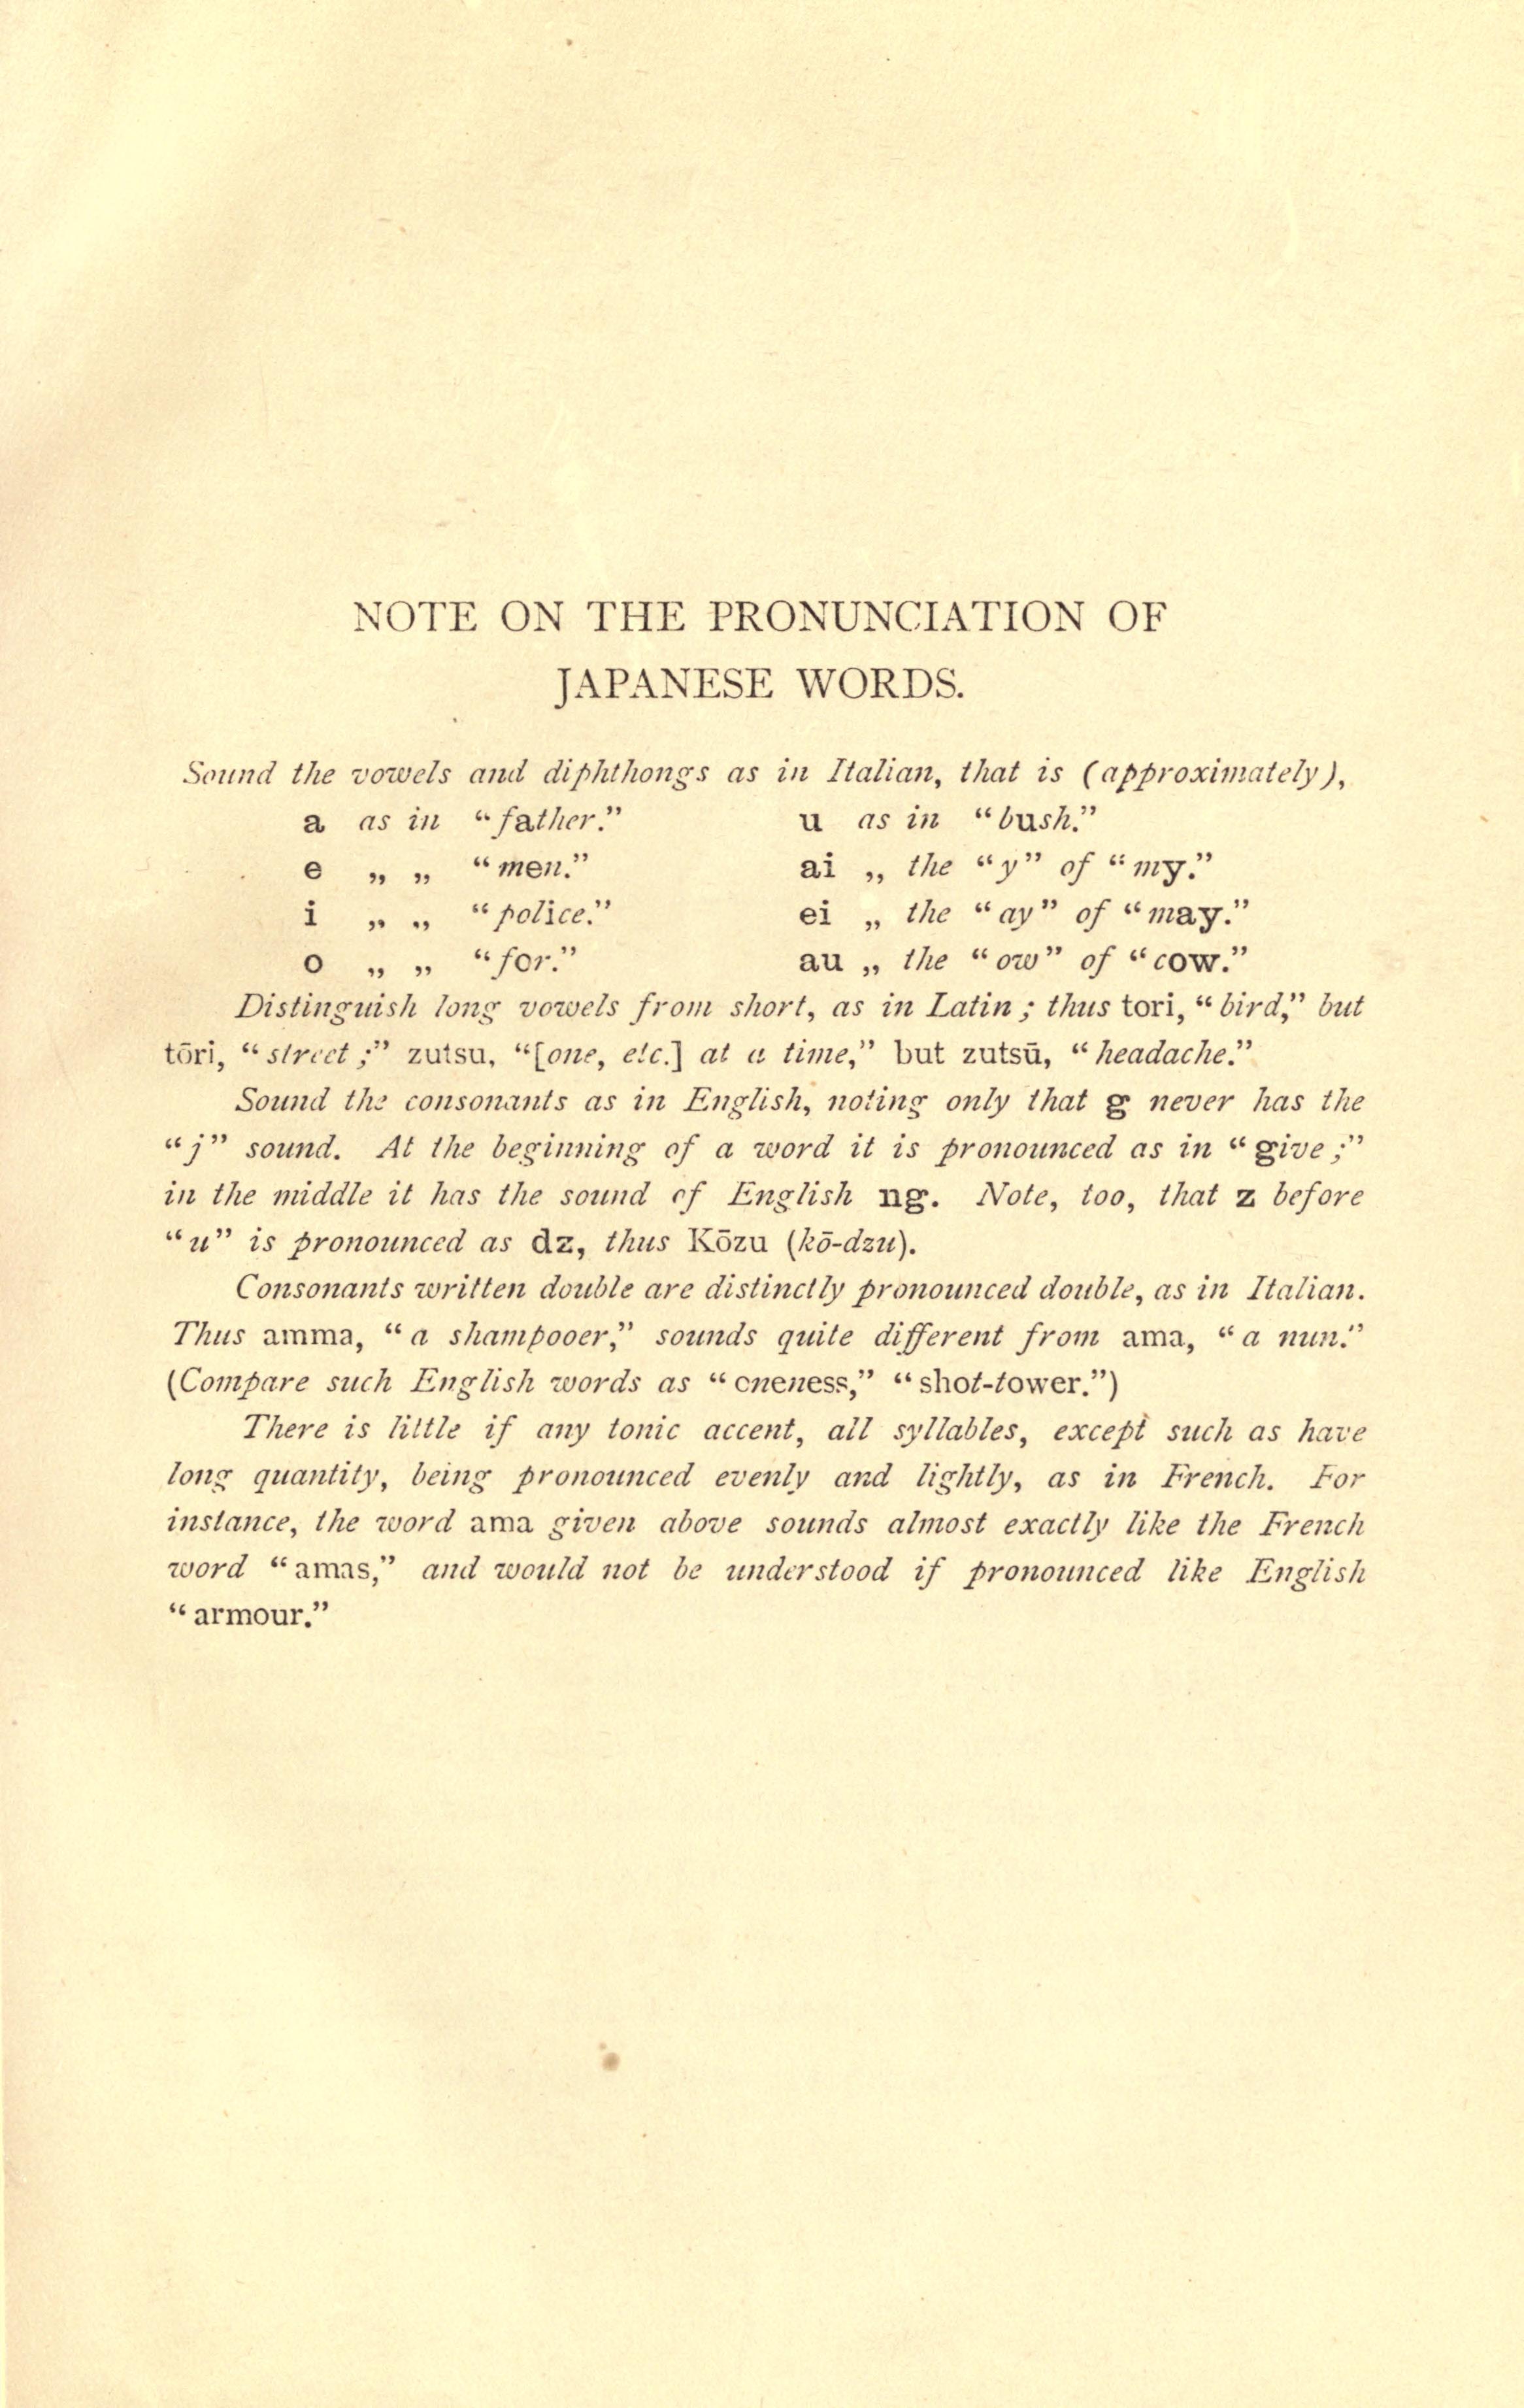 NOTE ON THE PRONUNCIATION OF
JAPANESE WORDS.
Sound the vowels and diphthongs as in Italian, that is (approximately),
a as in “father.” u as in “bush.”
e „ „ “men.” ai „ the “y” of “my.”
i „ „ “police.” ei „ the “ay” of “may.”
o „ „ “for.” au „ the “ow” of “cow.”
Distinguish long vowels from short, as in Latin; thus tori, “bird,” but
tōri, “street;” zutsu, “[one, etc.] at a time,” but zutsū, “headache.”
Sound the consonants as in English, noting only that g never has the
“j” sound. At the beginning of a word it is pronounced as in “give;”
in the middle it has the sound of English ng. Note, too, that z before
“u” is pronounced as dz, thus Kōzu (kō-dzu).
Consonants written double are distinctly pronounced double, as in Italian.
Thus amma, “a shampooer,” sounds quite different from ama, “a nun.”
(Compare such English words as “oneness,” “shot-tower.”)
There is little if any tonic accent, all syllables, except such as have
long quantity, being pronounced evenly and lightly, as in French. For
instance, the word ama given above sounds almost exactly like the French
word “amas,” and would not be understood if pronounced like English
“armour.”